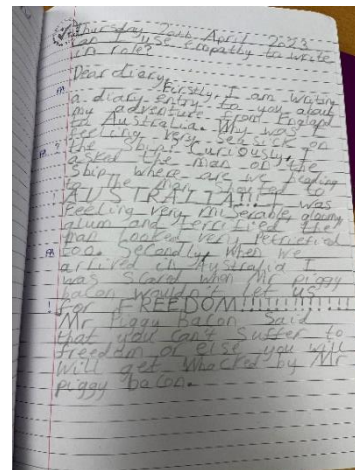 Thursday 20th April 2023
can I use empathy to write
in role?
Dear diary,
Firstly, I am writing
a diary entry to you about
my adventure from England
to Australia. My was
feeling very sea sick on
the ship. Curiously, I
asked the man on the
ship where are we heading
to the man shouted to
AUSTRALIA!!! I was
feeling very miserable, gloomy
glum and terrified the
man looked very petrified
too. Secondly, when we
arrived in Australia I
was scard when Mr piggy
bacon wouldn't let us
for FREEDOM!!!!!!!!!!!!!!
Mr Piggy Bacon said
that you cant suffer to
freedom or else you will
will get whacked by Mr
piggy bacon.